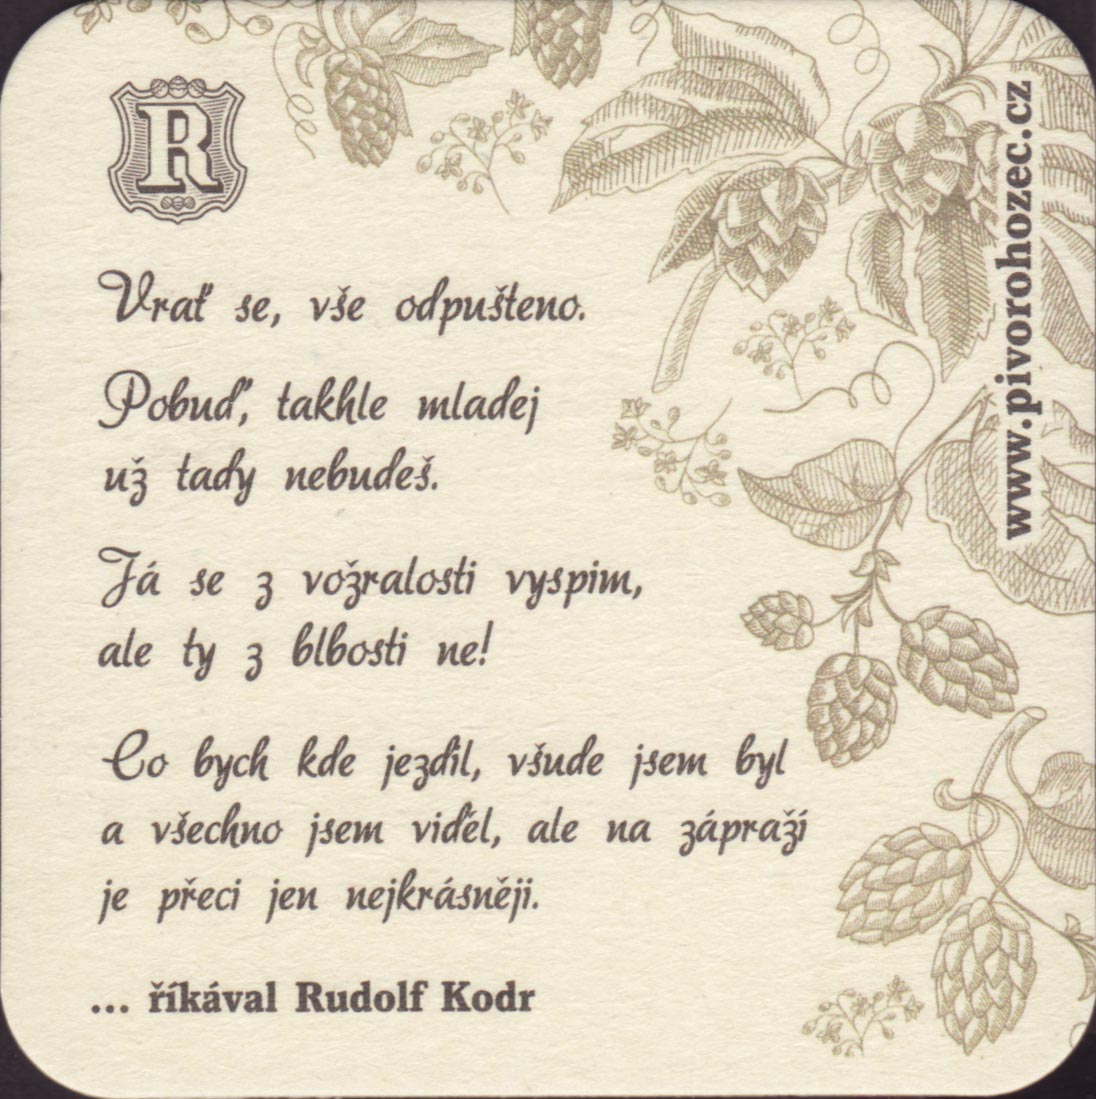 R
Vrať se, vše odpušteno.
Pobuď, takhle mladej
už tady nebudeš.
Já se z vožralosti vyspim,
ale ty z blbosti ne!
Co bych kde jezdil, všude jsem byl
a všechno jsem viděl, ale na zápraží
je přeci jen nejkrásněji.
... říkával Rudolf Kodr
www.pivorohozec.cz